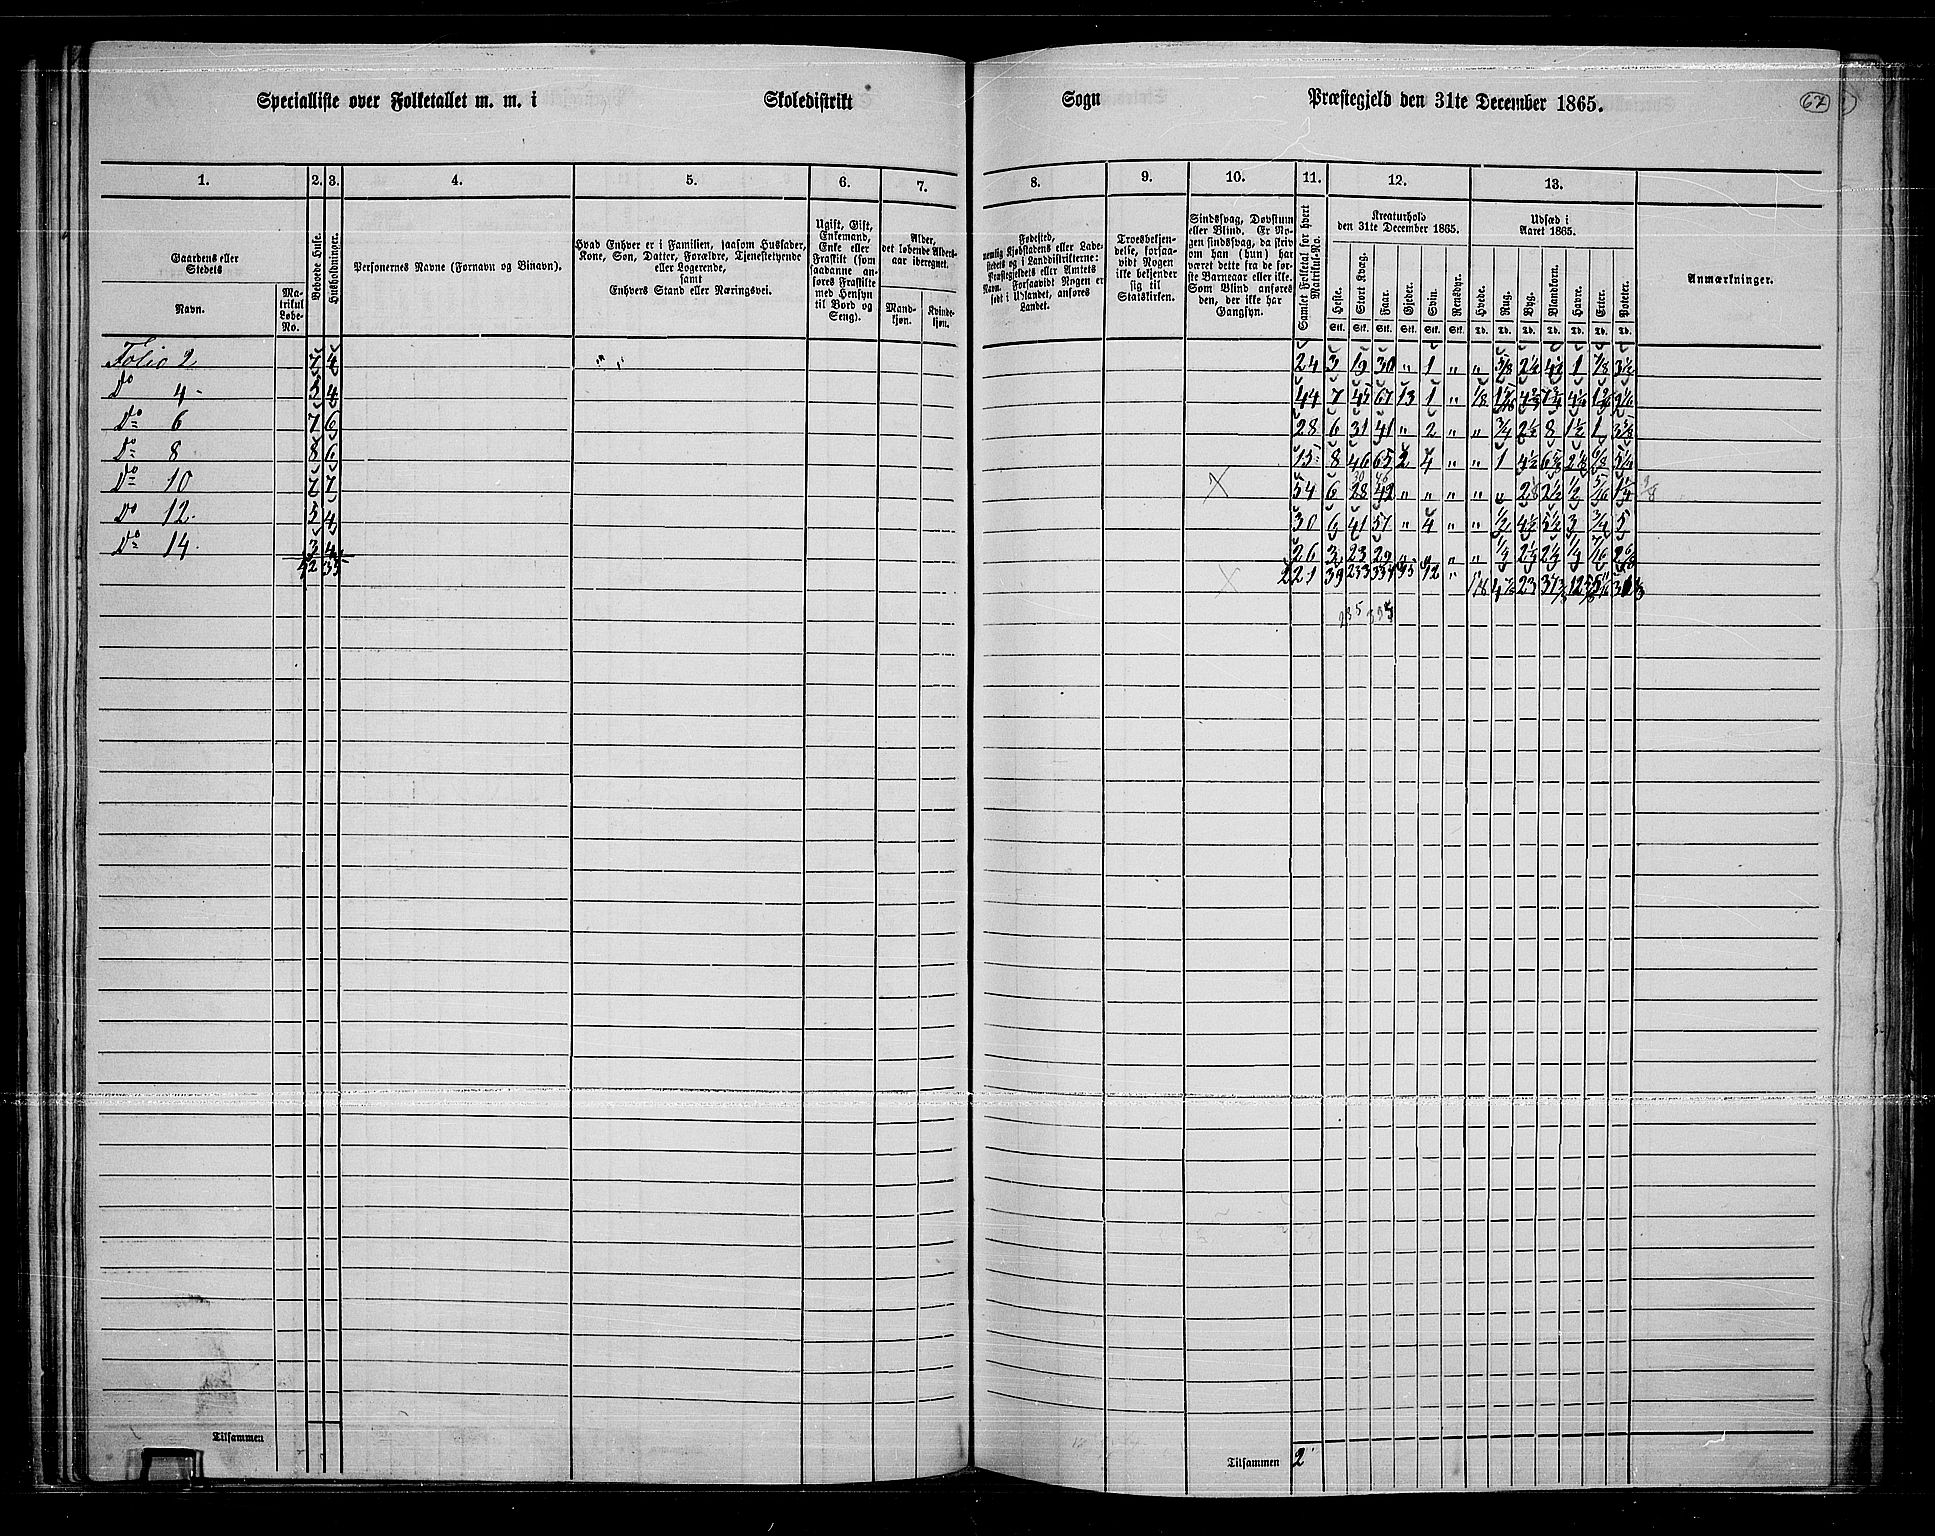 Specialliste over Folketallet m. m. i Skoledistrikt Sogn Præstegjeld den 31te December 1865. 67
1. 2. 3. 4. 5. 6. 7. 8. 9. 10. 11. 12. 13.
Gaardens eller Stedets
Navn.
Matrikul Løbe-No.
Beboede Huse.
Husholdninger.
Personernes Navne (Fornavn og Binavn).
Hvad Enhver er i Familien, saasom Husfader,
Kone, Søn, Datter, Forældre, Tjenestetyende
eller Logerende,
samt
Enhvers Stand eller Næringsvei.
Ugift, Gift,
Enkemand,
Enke eller
Fraskilt (som
saadanne an-
føres Fraskilte
med Hensyn
til Bord og
Seng).
Alder,
det løbende Alders-
aar iberegnet.
Mand-
kjøn.
Kvinde-
kjøn.
Fødested,
nemlig Kjøbstadens eller Lade-
stedets og i Landdistrikterne:
Præstegjeldets eller Amtets
Navn. Forsaavidt Nogen er
født i Udlandet, anføres
Landet.
Troesbekjen-
delse, forsaa-
vidt Nogen
ikke bekjender
sig til
Statskirken.
Sindssvag, Døvstum
eller Blind. Er No-
gen sindssvag, da skriv
om han (hun) har
været dette fra de før-
ste Barneaar eller ikke.
Som Blind anføres
den, der ikke har
Gangsyn.
Samlet Folketal for hvert
Matrikul-No.
Kreaturhold
den 31te December 1865.
Heste. Stort Kvæg. Faar. Gjeder. Svin. Rensdyr.
Stk. Stk. Stk. Stk. Stk. Stk.
Udsæd i
Aaret 1865.
Hvede. Rug. Byg. Blandkorn. Havre. Erter. Poteter.
Td. Td. Td. Td. Td. Td. Td.
Anmærkninger.
Folio 2 7 4 " " 24 3 19 30 " 1 " " 5/8 2½ 4½ 1 7/8 3½
Do 4 5 4 44 7 45 67 13 1 " 1/8
Do 6 7 6 28 6 31 41 " 2 " " 3/4 2½ 8 1½ 1 3 5/8
Do 8 8 6 15 8 46 65 2 4 " " 1 4½
Do 10 7 7 X 54 6 28 42 " " " " "
Do 12 5 4 30 6 41 57 " 4 " " ½ 4½ 5½ 3 3/4 5
Do 14 3 4 26 3 23 29 " " " "
42 35 X 221 39 233 331 15 12 "
235 335
Tilsammen
Tilsammen 2